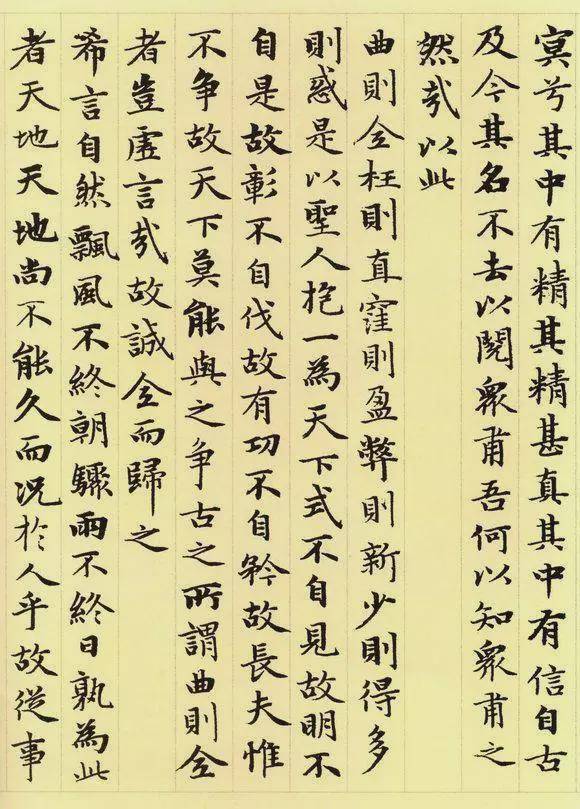 冥兮其中有精其精甚真其中有信自古
及今其名不去以閱眾甫吾何以知眾甫之
然哉以此
曲則全枉則直窪則盈弊則新少則得多
則惑是以聖人抱一為天下式不自見故明不
自是故彰不自伐故有功不自矜故長夫惟
不争故天下莫能與之争古之所謂曲則全
者豈虛言哉故誠全而歸之
希言自然飄風不終朝驟雨不終日孰為此
者天地天地尚不能久而況於人乎故從事